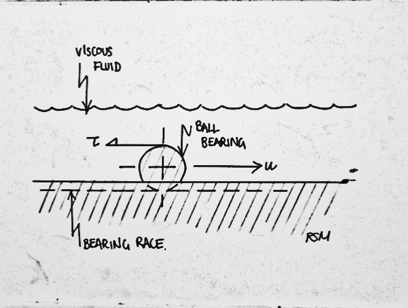 VISCOUS
FLUID
τ
BALL
BEARING
u
BEARING RACE.
RSM